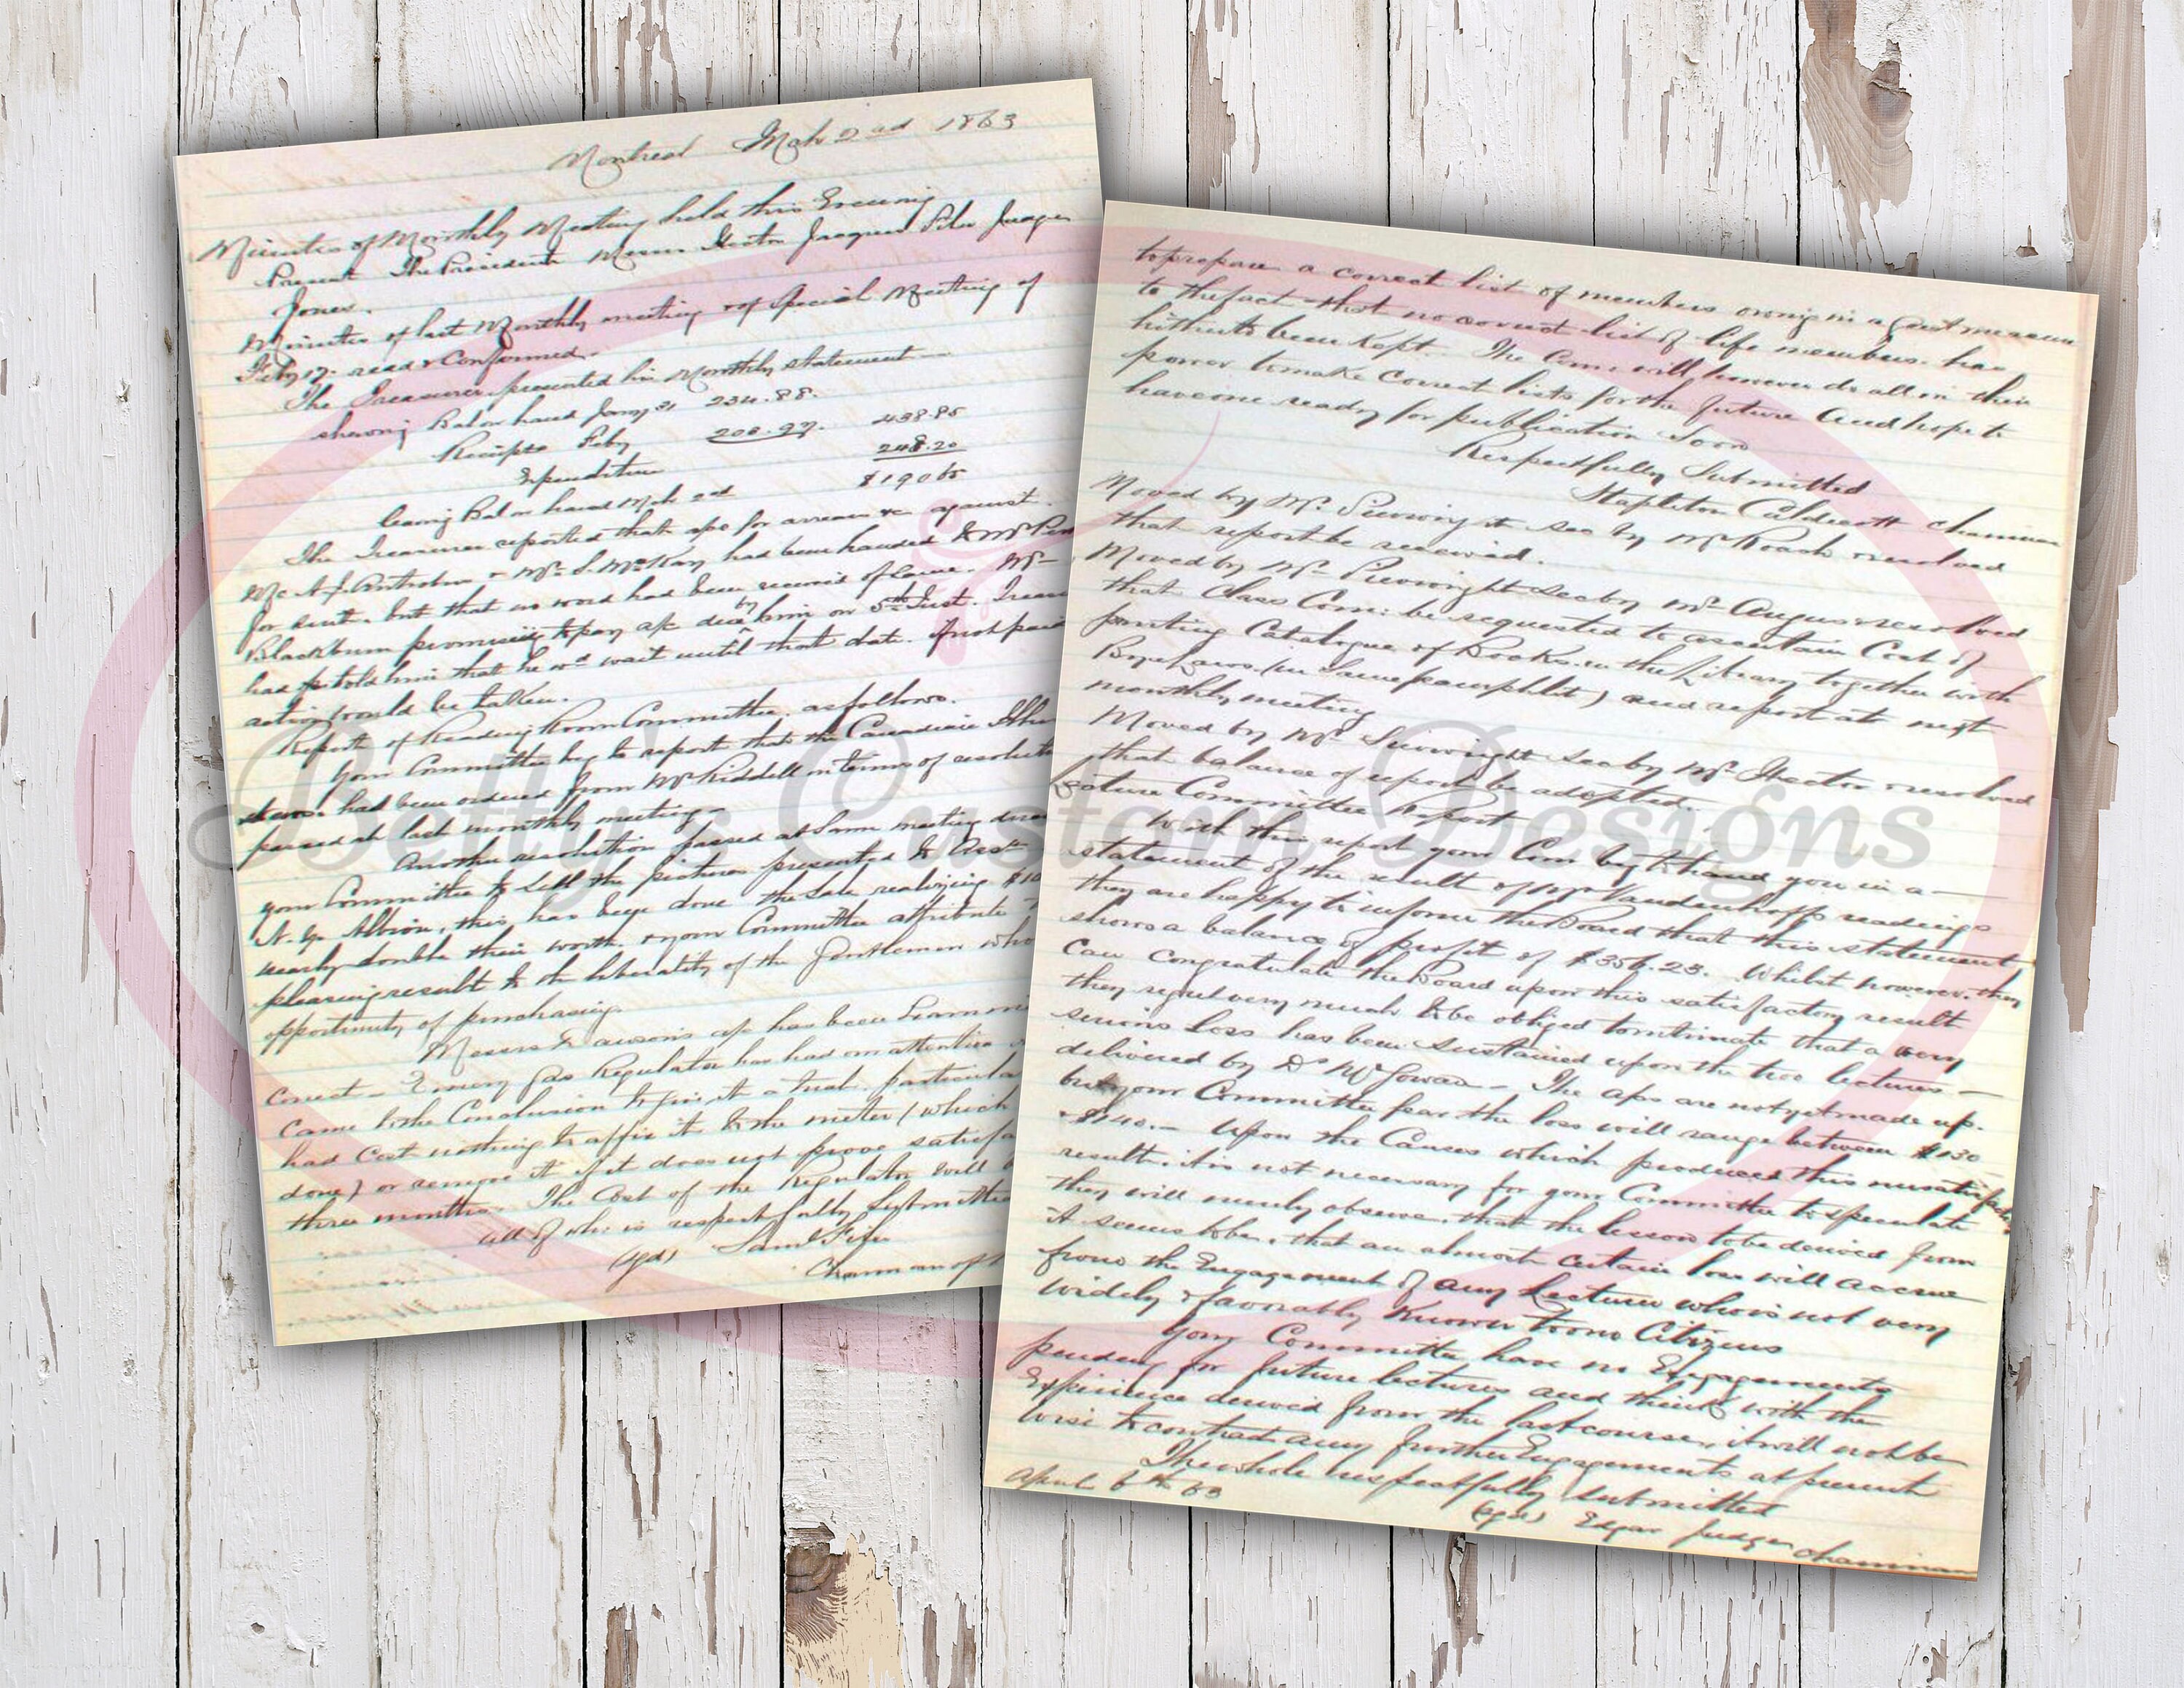 Montreal Mch 2nd 1863
Minutes of Monthly Meeting held this Evening
Present The President Messrs Hector Jaques Filer Judge
Jones.
Minutes of last Monthly meeting & of Special Meeting of
Feby 17. read & Confirmed.
The Treasurer presented his Monthly statement
showing Bal on hand Jany 31 234.88.
Receipts Feby 438.85
Expenditure 248.20
leaving Bal on hand Mch 2nd $190 65
The Treasurer reported that a/cs for arrears &c against
had been handed to Mr
for suit. but that no word had been received of same. Mr
Blackburn promising to pay a/c due by him on 5th Inst.
had told him that he wd wait until that date. if not paid
action would be taken.
Report of Reading Room Committee. as follows.
Your Committee beg to report that the Canadian
had been ordered from Mr Riddell in terms of
passed at last monthly meeting.
Another resolution passed at same meeting
your Committee to sell the pictures presented to
N. Y. Albion, this has been done the sale realizing
nearly double their worth. & your Committee attribute
pleasing result to the liberality of the Gentlemen who
opportunity of purchasing.
Messrs Dawson's a/c has been
Correct - Gas Regulator has had our attention
Came to the Conclusion to give it a trial.
had Cost nothing to affix it to the meter (which
done) or remove it if it does not prove
three months. The Cost of the Regulator will
All of wh: is respectfully Submitted
(sgd)
Chairman of
to prepare a correct list of members owing in a great measure
to the fact that no correct list of life members. has
hitherto been kept. The Com. will however do all in their
power to make correct lists for the future and hope to
have one ready for publication Soon
Respectfully Submitted
Stapleton Caldecott Chairman
Moved by Mr. sec by Mr Roach & resolved
that report be received.
Moved by Mr sec by Mr Angus & resolved
that Class Com: be requested to ascertain Cost of
printing Catalogue of Books in the Library together with
Bye Laws. (in same pamphlet) and report at next
monthly meeting
Moved by Mr sec by Mr Hector & resolved
that balance of report be adopted.
Lecture Committee Report
With this report your Com beg to hand you in a
statement of the result of Mr Vandenhoff's readings
they are happy to inform the Board that this statement
shows a balance of profit of $356.23. Whilst however. they
Can Congratulate the Board upon this satisfactory result
they regret very much to be obliged to intimate that a very
serious loss has been sustained upon the two lectures
delivered by Dr McGowan - The a/cs are not yet made up.
but your Committee fear the loss will range between $130
& $140. - Upon the Causes which produced this
result. it is not necessary for your Committee to speculate
they will merely observe. that the lesson to be derived from
it seems to be. that an almost certain loss will accrue
from the Engagement of any Lecturer who is not very
widely & favorably Known to our Citizens
Your Committee have no Engagements
pending for future lectures and think with the
Experience derived from the last course, it will not be
wise to contract any further Engagements at present
The whole respectfully submitted
April 6th 63
(sgd) Edgar Judge Chairman
Betty's Custom Designs